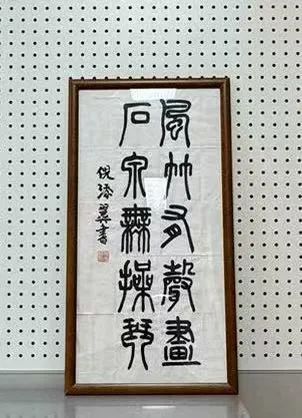 風竹有聲畫
石泉無操琴
倪添翼書